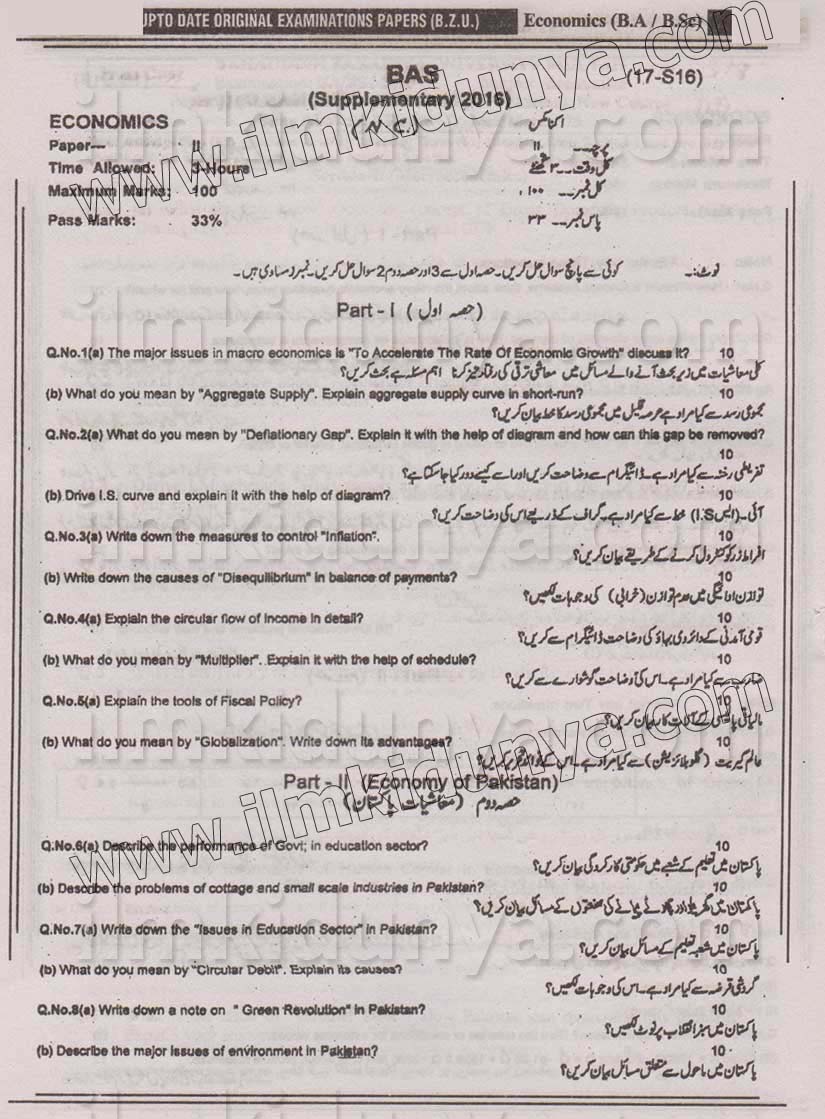 UPTO DATE ORIGINAL EXAMINATIONS PAPERS (B.Z.U.) Economics (B.A / B.Sc)
BAS (17-S16)
(Supplementary 2016)
ECONOMICS (N.C.) اکنامکس
Paper--- II پرچہ۔۔ II
Time Allowed: 3-Hours کل وقت۔۔ ۳ گھنٹے
Maximum Marks: 100 کل نمبر۔۔ ۱۰۰
Pass Marks: 33% پاس نمبر۔۔ ۳۳
نوٹ:۔ کوئی سے پانچ سوال حل کریں۔ حصہ اول سے 3 اور حصہ دوم 2 سوال حل کریں۔ نمبر مساوی ہیں۔
Part - I ( حصہ اول )
Q.No.1(a) The major issues in macro economics is "To Accelerate The Rate Of Economic Growth" discuss it? 10
کلی معاشیات میں زیر بحث آنے والے مسائل میں معاشی ترقی کی رفتار تیز کرنا اہم مسئلہ ہے بحث کریں؟
(b) What do you mean by "Aggregate Supply". Explain aggregate supply curve in short-run? 10
مجموعی رسد سے کیا مراد ہے عرصہ قلیل میں مجموعی رسد کا خط بیان کریں؟
Q.No.2(a) What do you meen by "Deflationary Gap". Explain it with the help of diagram and how can this gap be removed?
10
تفریطی رخنہ سے کیا مراد ہے۔ ڈائیگرام سے وضاحت کریں اور اسے کیسے دور کیا جا سکتا ہے؟
(b) Drive I.S. curve and explain it with the help of diagram? 10
آئی۔ایس (I.S) خط سے کیا مراد ہے۔ گراف کے ذریعے اس کی وضاحت کریں؟
Q.No.3(a) Write down the measures to control "Inflation". 10
افراط زر کو کنٹرول کرنے کے طریقے بیان کریں؟
(b) Write down the causes of "Disequilibrium" in balance of payments? 10
توازن ادائیگی میں عدم توازن (خرابی) کی وجوہات لکھیں؟
Q.No.4(a) Explain the circular flow of income in detail? 10
قومی آمدنی کے دائروی بہاؤ کی وضاحت ڈائیگرام سے کریں؟
(b) What do you mean by "Multiplier". Explain it with the help of schedule? 10
ضارب سے کیا مراد ہے۔ اس کی وضاحت گوشوارے سے کریں؟
Q.No.5(a) Explain the tools of Fiscal Policy? 10
مالیاتی پالیسی کے آلات کار بیان کریں؟
(b) What do you mean by "Globalization". Write down its advantages? 10
عالم گیریت (گلوبلائزیشن) سے کیا مراد ہے۔ اس کے فوائد تحریر کریں؟
Part - II (Economy of Pakistan)
حصہ دوم (معاشیات پاکستان)
Q.No.6(a) Describe the performance of Govt; in education sector? 10
پاکستان میں تعلیم کے شعبے میں حکومتی کارکردگی بیان کریں؟
(b) Describe the problems of cottage and small scale industries in Pakistan? 10
پاکستان میں گھریلو اور چھوٹے پیمانے کی صنعتوں کے مسائل بیان کریں؟
Q.No.7(a) Write down the "Issues in Education Sector" in Pakistan? 10
پاکستان میں شعبہ تعلیم کے مسائل بیان کریں؟
(b) What do you mean by "Circular Debit". Explain its causes? 10
گردشی قرضہ سے کیا مراد ہے۔ اس کی وجوہات لکھیں؟
Q.No.8(a) Write down a note on " Green Revolution" in Pakistan? 10
پاکستان میں سبز انقلاب پر نوٹ لکھیں؟
(b) Describe the major issues of environment in Pakistan? 10
پاکستان میں ماحول سے متعلق مسائل بیان کریں؟
www.ilmkidunya.com
www.ilmkidunya.com
ilmkidunya.com
ilmkidunya.com
ilmkidunya.com
ilmkidunya.com
ilmkidunya.com